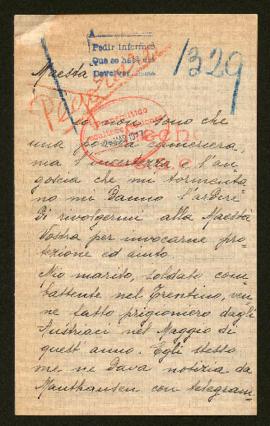 A
Pedir informes
Que se hallen
Devolver
1329
Maestà
Io non sono che
una povera cameriera,
ma l'incertezza e l'an
goscia che mi tormenta
no mi danno l'ardire
di rivolgermi alla Maestà
Vostra per invocarne pro
tezione ed aiuto
Mio marito, soldato com
battente nel Trentino, ven
ne fatto prigioniero dagli
Austriaci nel Maggio di
quest'anno. Egli stesso
me ne dava notizia da
Mauthausen con telegram